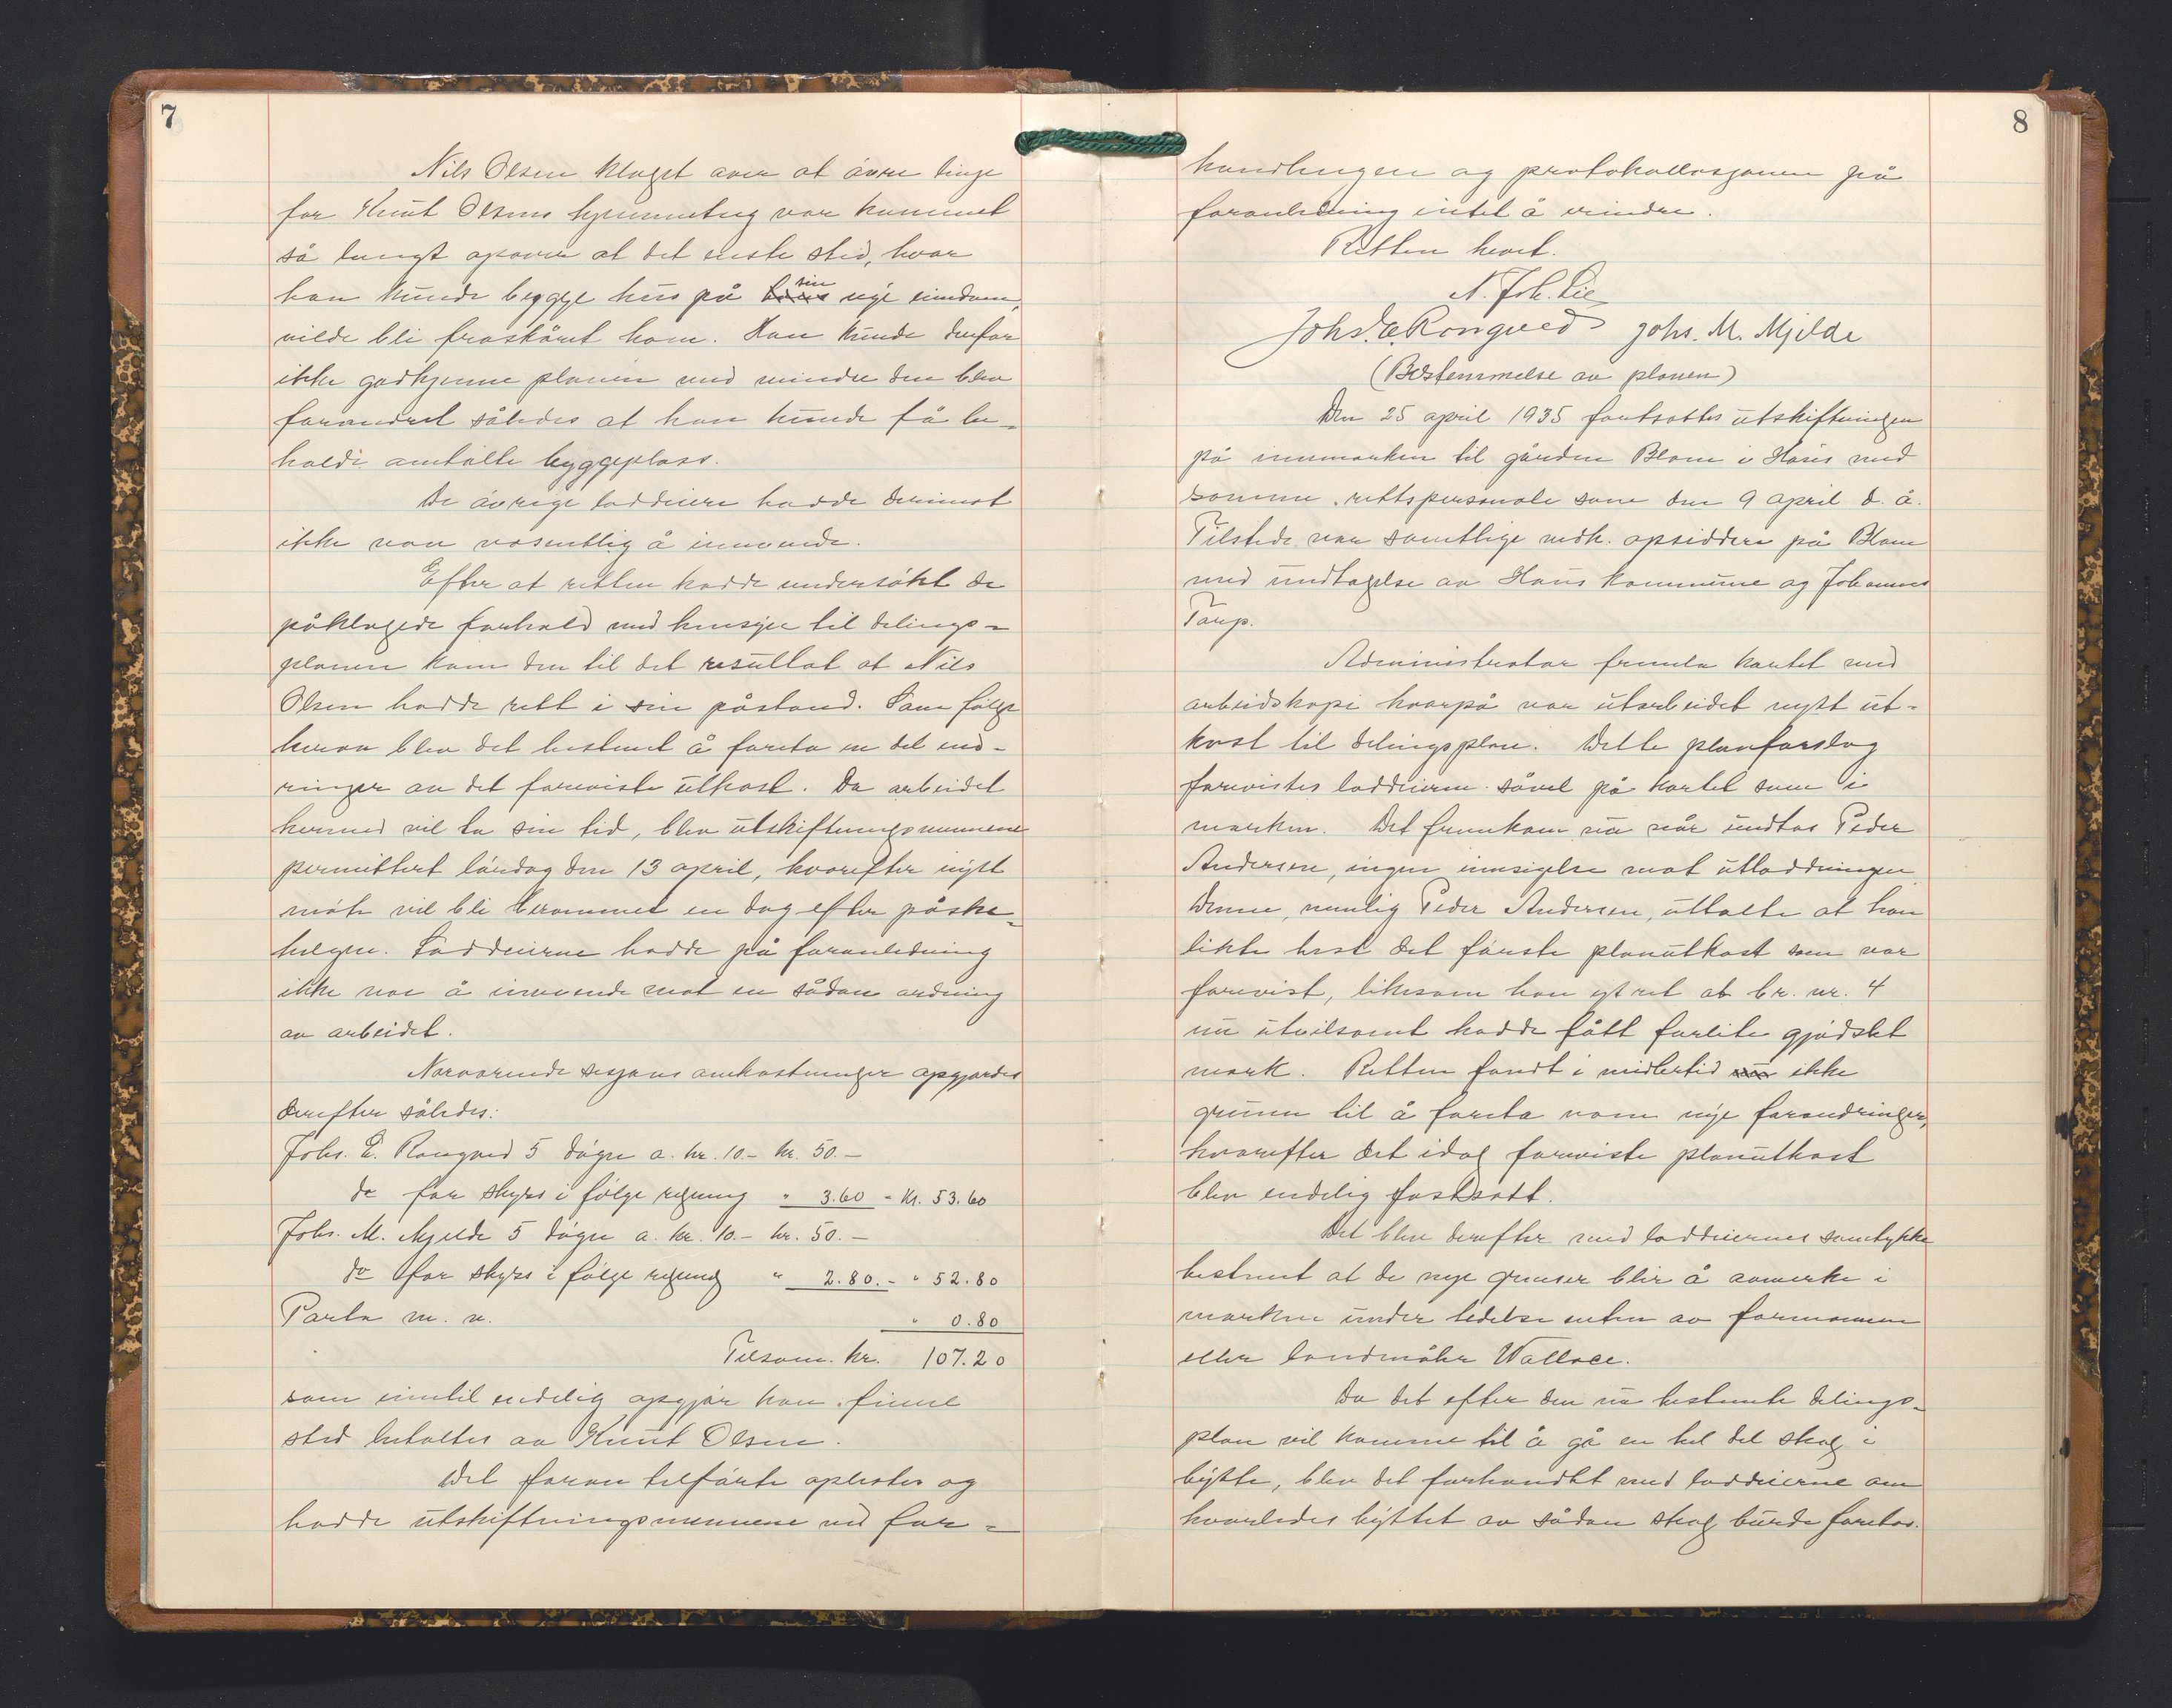 7
Nils Olsen klaget over at øvre linje
for Knut Olsens hjemmeteig var kommet
så langt opover at det eneste sted, hvor
han kunde bygge hus på sin nye eiendom,
vilde bli fraskåret ham. Han kunde derfor
ikke godkjenne planen med mindre den blev
forandret således at han kunde få be-
holde omtalte byggeplass.
De øvrige loddeiere hadde derimot
ikke noe vesentlig å innvende.
Efter at retten hadde undersøkt de
påklagede forhold med hensyn til delings-
planen kom den til det resultat at Nils
Olsen hadde rett i sin påstand. Som følge
herav blev det bestemt å foreta en del end-
ringer av det foreviste utkast. Da arbeidet
hermed vil ta sin tid, blev utskiftningsmennene
permittert lørdag den 13 april, hvorefter nytt
møte vil bli berammet en dag efter påske-
helgen. Loddeierne hadde på foranledning
ikke noe å innvende mot en sådan ordning
av arbeidet.
Nærværende sesjons omkostninger opgjordes
derefter således:
Johs. E. Rongved 5 døgn a. kr. 10.- kr. 50.-
do for skyss i følge regning " 3.60 = Kr. 53.60
Johs. M. Mjelde 5 døgn a. kr. 10.- kr. 50.-
do for skyss i følge regning " 2.80.- " 52.80
Porto m. v. " 0.80
Tilsam. kr. 107.20
som inntil endelig opgjør kan finne
sted betaltes av Knut Olsen.
Det foran tilførte oplestes og
hadde utskiftningsmennene ved for-
8
handlingen og protokollasjonen på
foranledning intet å erindre.
Retten hevet.
N. Joh. Lie
Johs. E. Rongved Johs. M. Mjelde
(Bestemmelse av planen)
Den 25 april 1935 fortsattes utskiftningen
på innmarken til gården Blom i Haus med
samme rettspersonale som den 9 april d. å.
Tilstede var samtlige vedk. opsiddere på Blom
med undtagelse av Haus kommune og Johannes
Taup.
Administrator fremla kartet med
arbeidskopi hvorpå var utarbeidet nytt ut-
kast til delingsplan. Dette planforslag
forevistes loddeierne såvel på kartet som i
marken. Det fremkom nu når undtas Peder
Andersen, ingen innsigelse mot utloddningen.
Denne, nemlig Peder Andersen, uttalte at han
likte best det første planutkast som var
forevist, likesom han ytret at br. nr. 4
nu utvilsomt hadde fått forlite gjødslet
mark. Retten fandt i midlertid nu ikke
grunn til å foreta noen nye forandringer,
hvorefter det idag foreviste planutkast
blev endelig fastsatt.
Det blev derefter med loddeiernes samtykke
bestemt at de nye grenser blir å avmerke i
marken under ledelse enten av formannen
eller landmåler Wallace.
Da det efter den nu bestemte delings-
plan vil komme til å gå en hel del skog i
bytte, blev det forhandlet med loddeierne om
hvorledes byttet av sådan skog burde foretas.